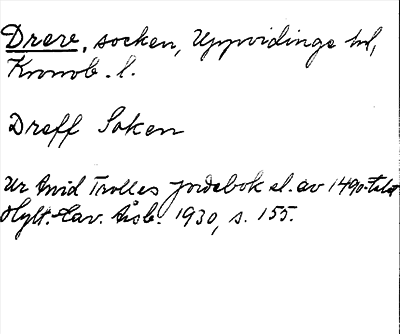 Drev, socken, Uppvidinge hd,
Kronob. l.
Dreff Soken
Ur Arvid Trolles jordebok sl. av 1490-talet
Hylt.-Cav. Årsb. 1930, s. 155.